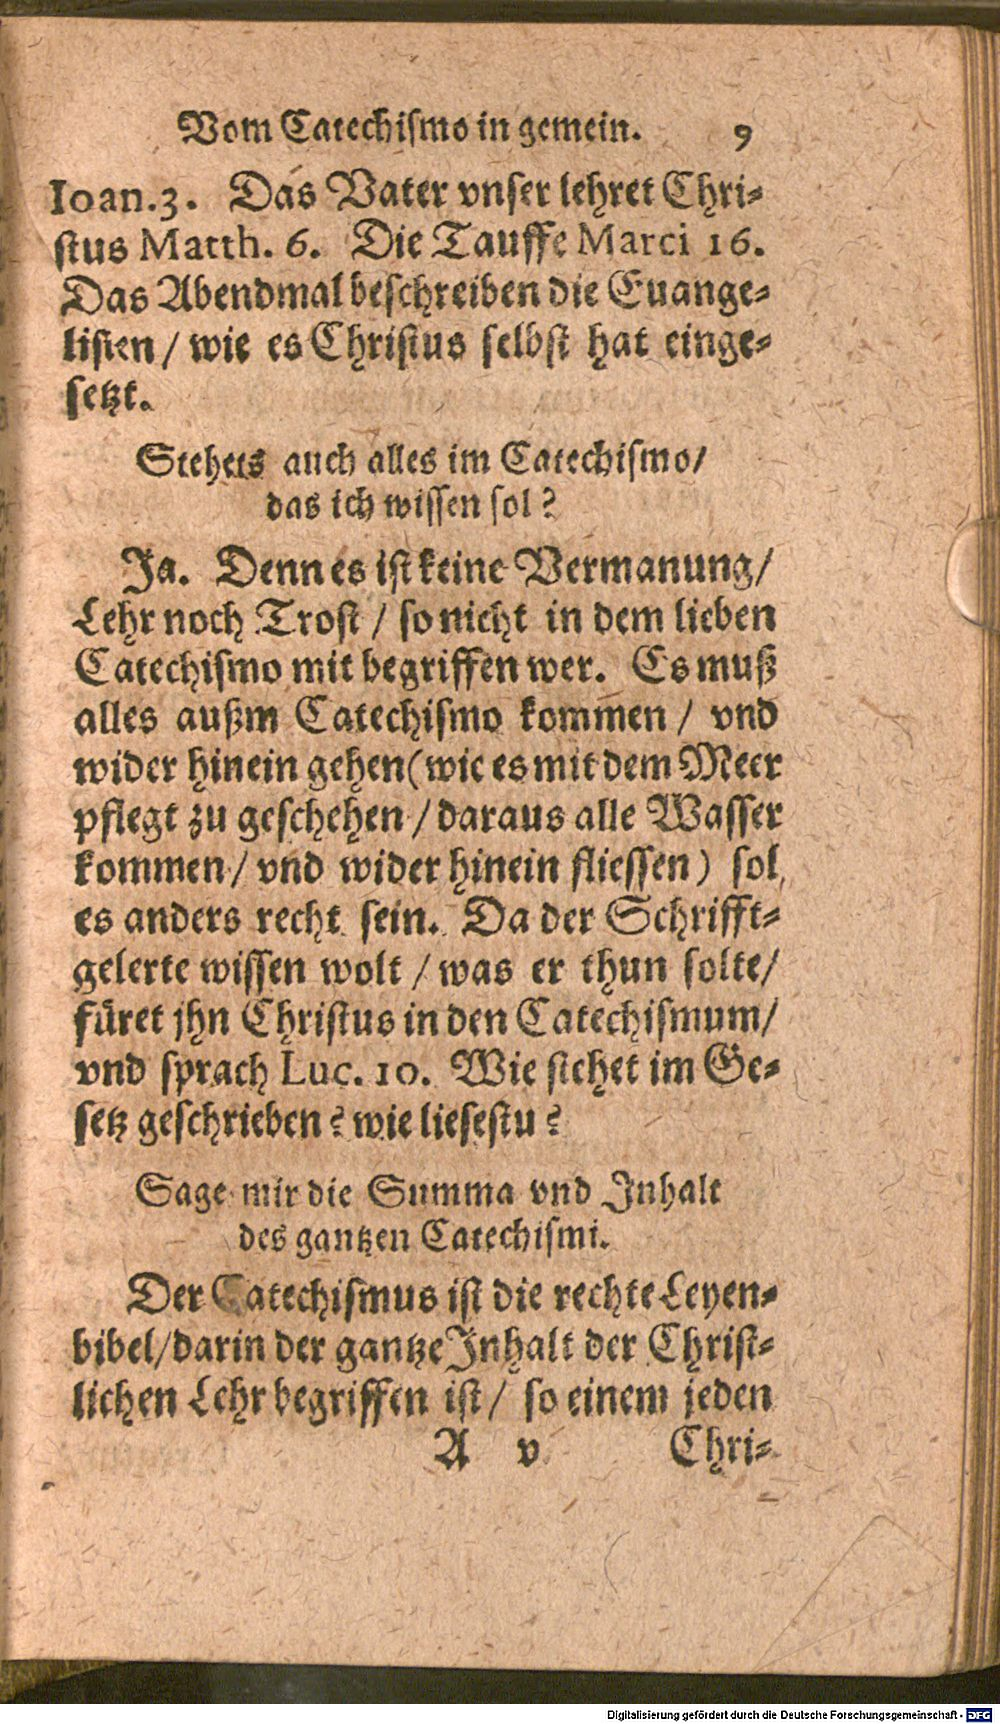 Vom Catechismo in gemein. 9
Ioan.3. Das Vater vnser lehret Chri-
stus Matth. 6. Die Tauffe Marci 16.
Das Abendmal beschreiben die Euange-
listen / wie es Christus selbst hat einge-
setzt.
Stehets auch alles im Catechismo/
das ich wissen sol?
Ja. Denn es ist keine Vermanung/
Lehr noch Trost / so nicht in dem lieben
Catechismo mit begriffen wer. Es muß
alles außm Catechismo kommen / vnd
wider hinein gehen (wie es mit dem Meer
pflegt zu geschehen / daraus alle Wasser
kommen / vnd wider hinein fliessen) sol
es anders recht sein. Da der Schrifft-
gelerte wissen wolt / was er thun solte/
füret jhn Christus in den Catechismum/
vnd sprach Luc. 10. Wie stehet im Ge-
setz geschrieben? wie liesestu?
Sage mir die Summa vnd Inhalt
des gantzen Catechismi.
Der Catechismus ist die rechte Leyen-
bibel/darin der gantze Inhalt der Christ-
lichen Lehr begriffen ist / so einem jeden
A v Chri-
Digitalisierung gefördert durch die Deutsche Forschungsgemeinschaft - DFG